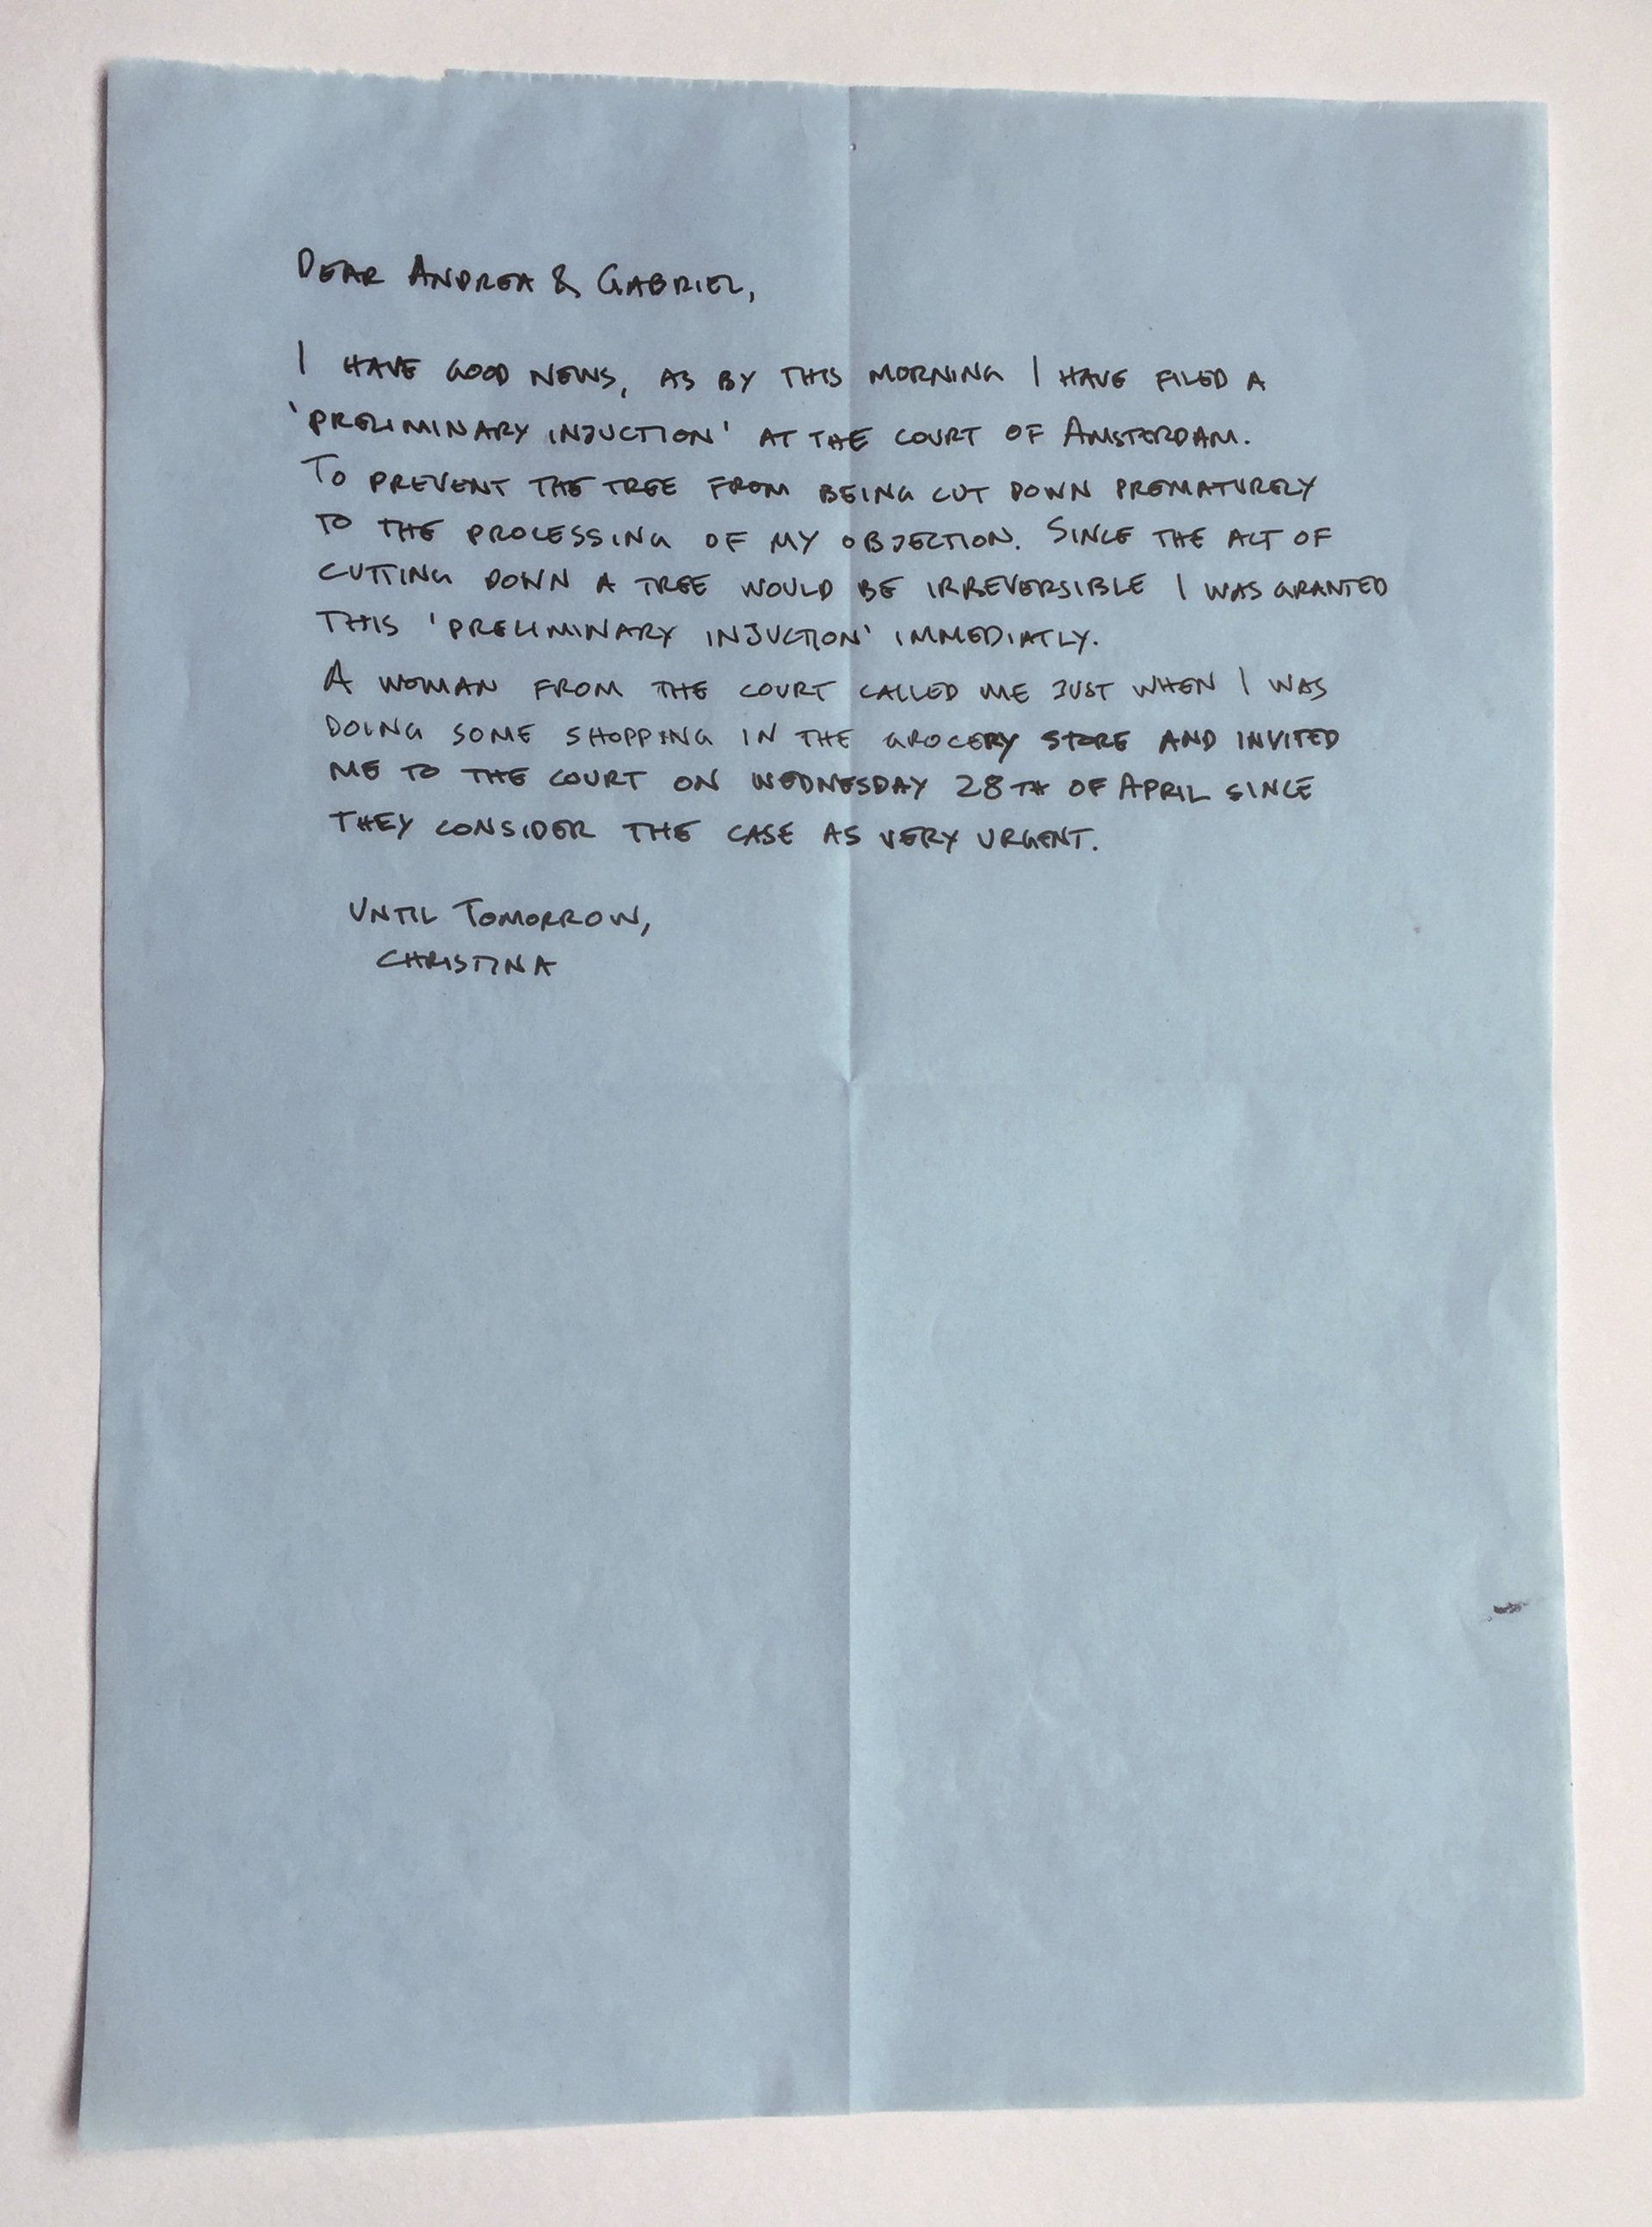 DEAR ANDREA & GABRIEL,
I HAVE GOOD NEWS, AS BY THIS MORNING I HAVE FILED A
'PRELIMINARY INJUCTION' AT THE COURT OF AMSTERDAM.
TO PREVENT THE TREE FROM BEING CUT DOWN PREMATURELY
TO THE PROCESSING OF MY OBJECTION. SINCE THE ACT OF
CUTTING DOWN A TREE WOULD BE IRREVERSIBLE I WAS GRANTED
THIS 'PRELIMINARY INJUCTION' IMMEDIATLY.
A WOMAN FROM THE COURT CALLED ME JUST WHEN I WAS
DOING SOME SHOPPING IN THE GROCERY STORE AND INVITED
ME TO THE COURT ON WEDNESDAY 28TH OF APRIL SINCE
THEY CONSIDER THE CASE AS VERY URGENT.
UNTIL TOMORROW,
CHRISTINA